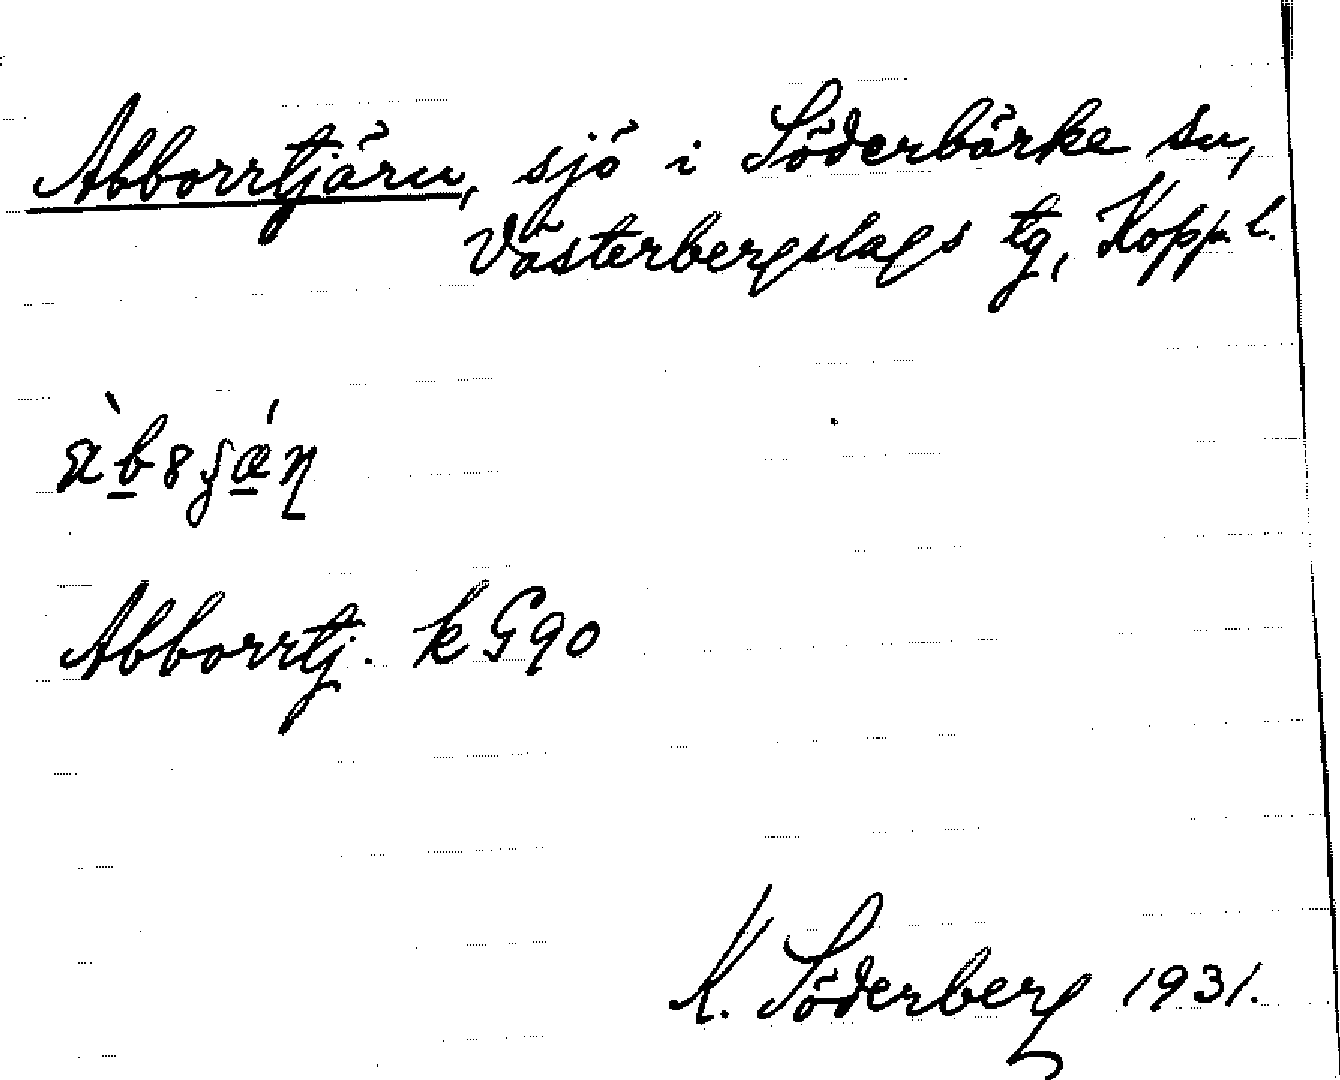 Abborrtjärn, sjö i Söderbärke sn,
Västerbergslags tg, Kopp. l.
Abborrtj. k G90
K. Söderberg 1931.